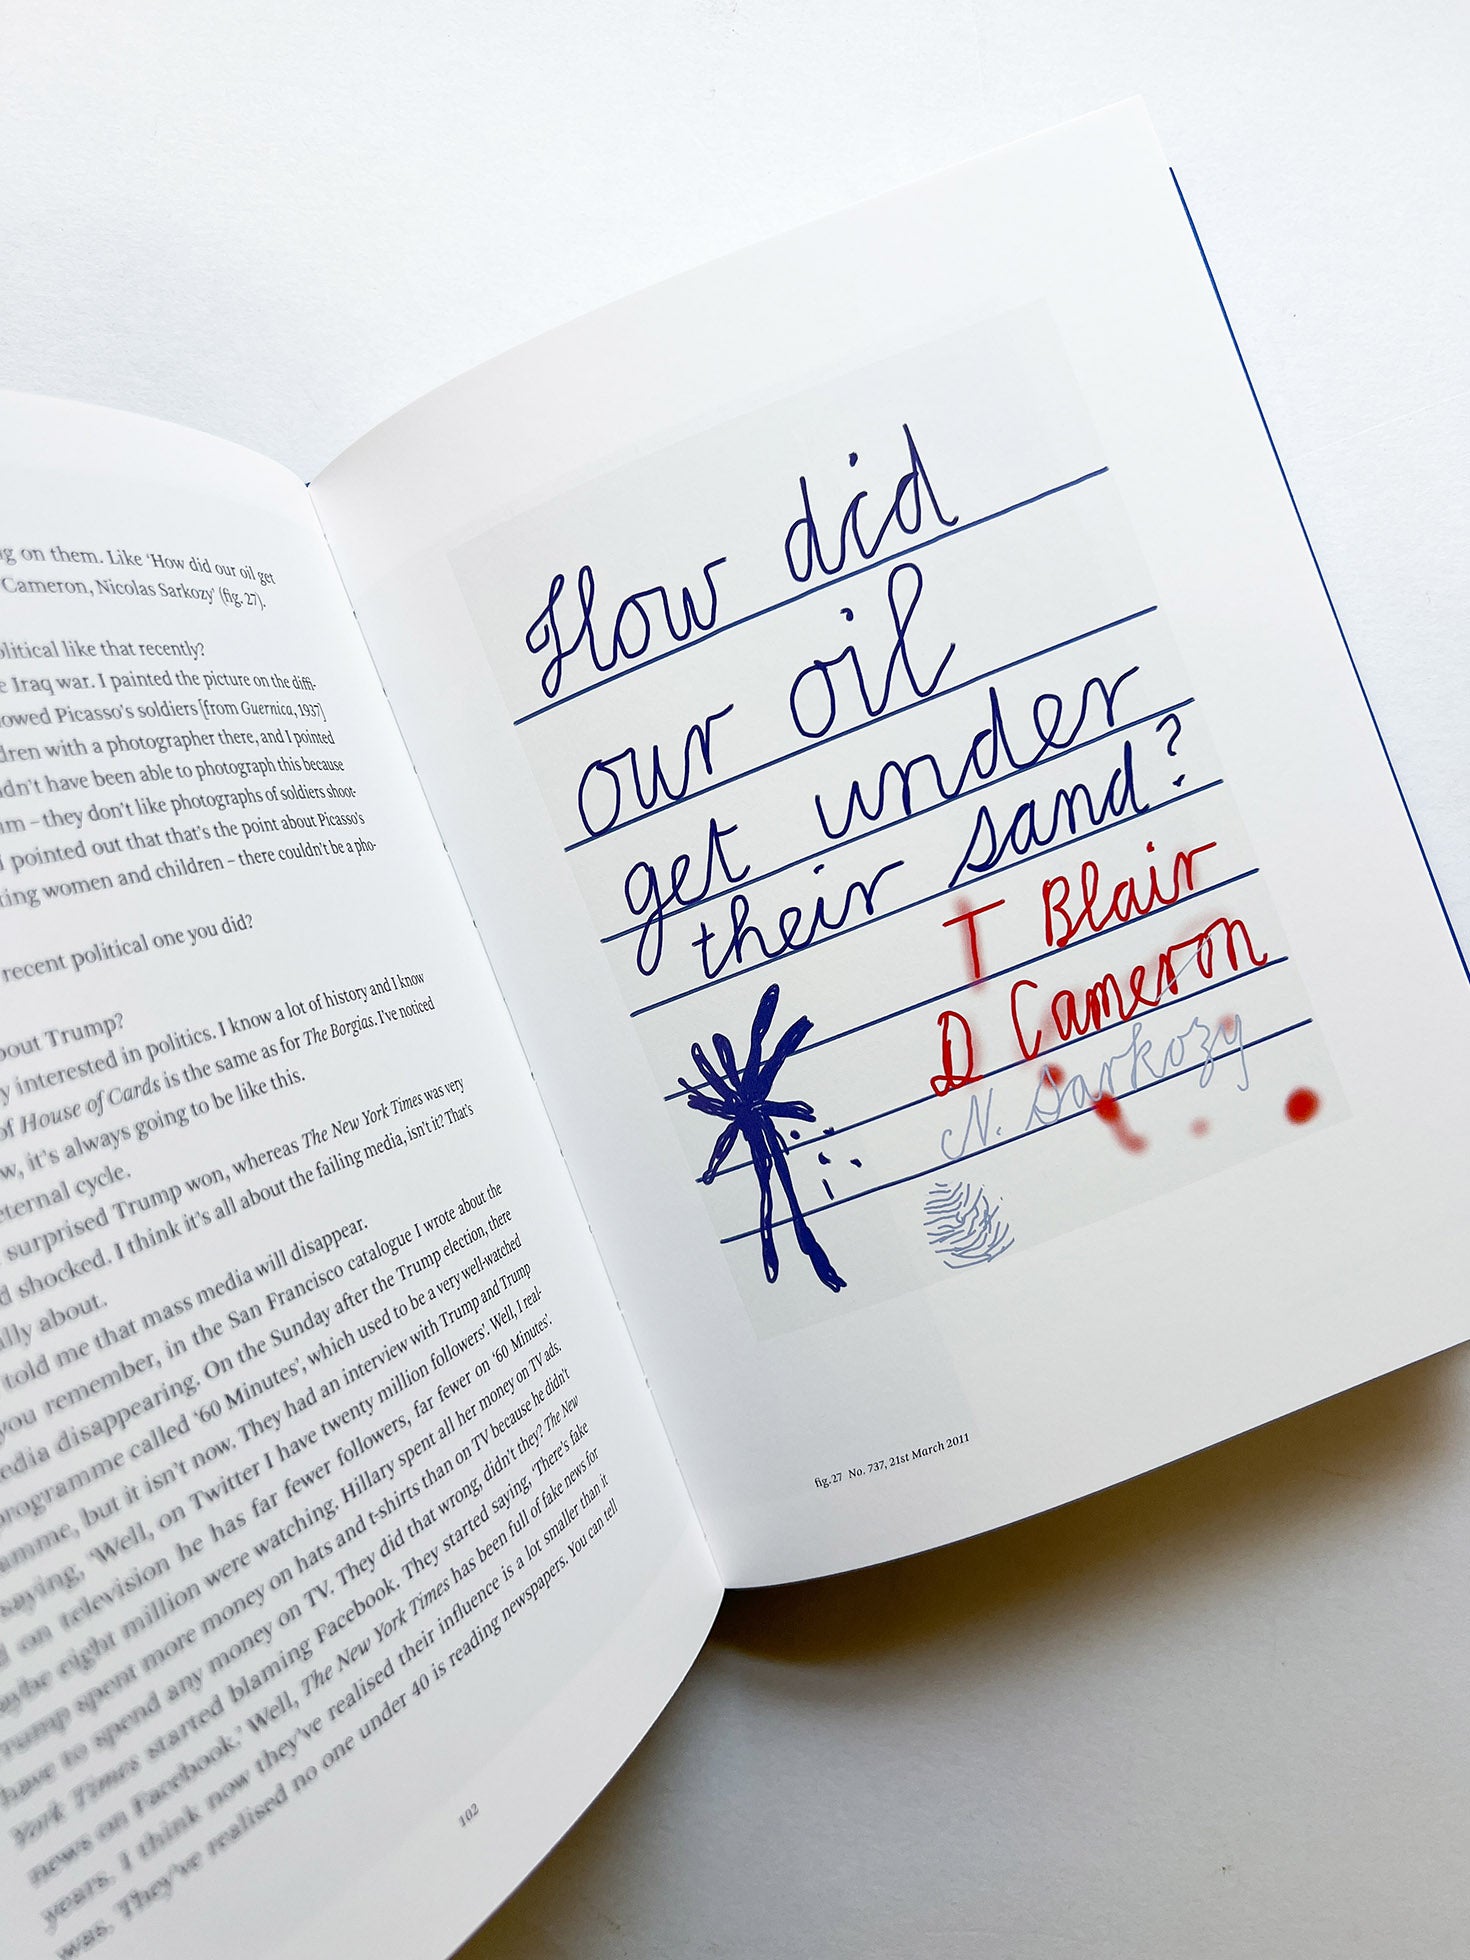 on them. Like 'How did our oil get
Cameron, Nicolas Sarkozy' (fig. 27).
political like that recently?
Iraq war. I painted the picture on the diffi-
Picasso's soldiers [from Guernica, 1937]
with a photographer there, and I pointed
have been able to photograph this because
– they don't like photographs of soldiers shoot-
pointed out that that's the point about Picasso's
women and children – there couldn't be a pho-
recent political one you did?
about Trump?
interested in politics. I know a lot of history and I know
of House of Cards is the same as for The Borgias. I've noticed
it's always going to be like this.
eternal cycle.
surprised Trump won, whereas The New York Times was very
shocked. I think it's all about the failing media, isn't it? That's
about.
told me that mass media will disappear.
you remember, in the San Francisco catalogue I wrote about the
disappearing. On the Sunday after the Trump election, there
programme called '60 Minutes', which used to be a very well-watched
but it isn't now. They had an interview with Trump and Trump
saying, 'Well, on Twitter I have twenty million followers'. Well, I real-
on television he has far fewer followers, far fewer on '60 Minutes'.
eight million were watching. Hillary spent all her money on TV ads.
Trump spent more money on hats and t-shirts than on TV because he didn't
have to spend any money on TV. They did that wrong, didn't they? The New
York Times started blaming Facebook. They started saying, 'There's fake
news on Facebook.' Well, The New York Times has been full of fake news for
years. I think now they've realised their influence is a lot smaller than it
was. They've realised no one under 40 is reading newspapers. You can tell
102
How did
our oil
get under
their sand?
T Blair
D Cameron
N. Sarkozy
fig. 27 No. 737, 21st March 2011